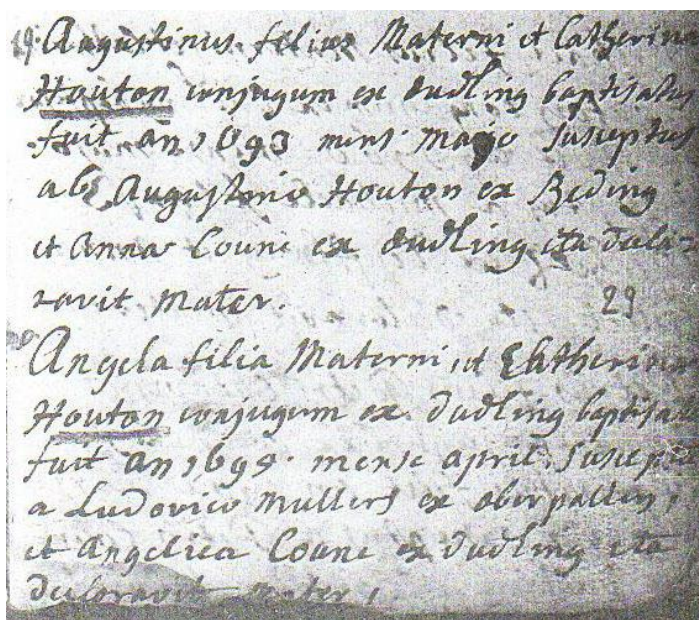 Augustinus filius Materni et Catherin
Houton conjugum ex dudling baptisatus
fuit an 1693 mens majo susceptus
ab Augustino Houton ex Beding
et Anna Coune ex dudling ita decla-
ravit mater.
29
Angela filia Materni, et Catherin
Houton conjugum ex dudling baptisat
fuit an mense april. suscep
a Ludovico Mullers ex oberpallen,
et Angelica Coune ex dudling ita
declaravit mater,